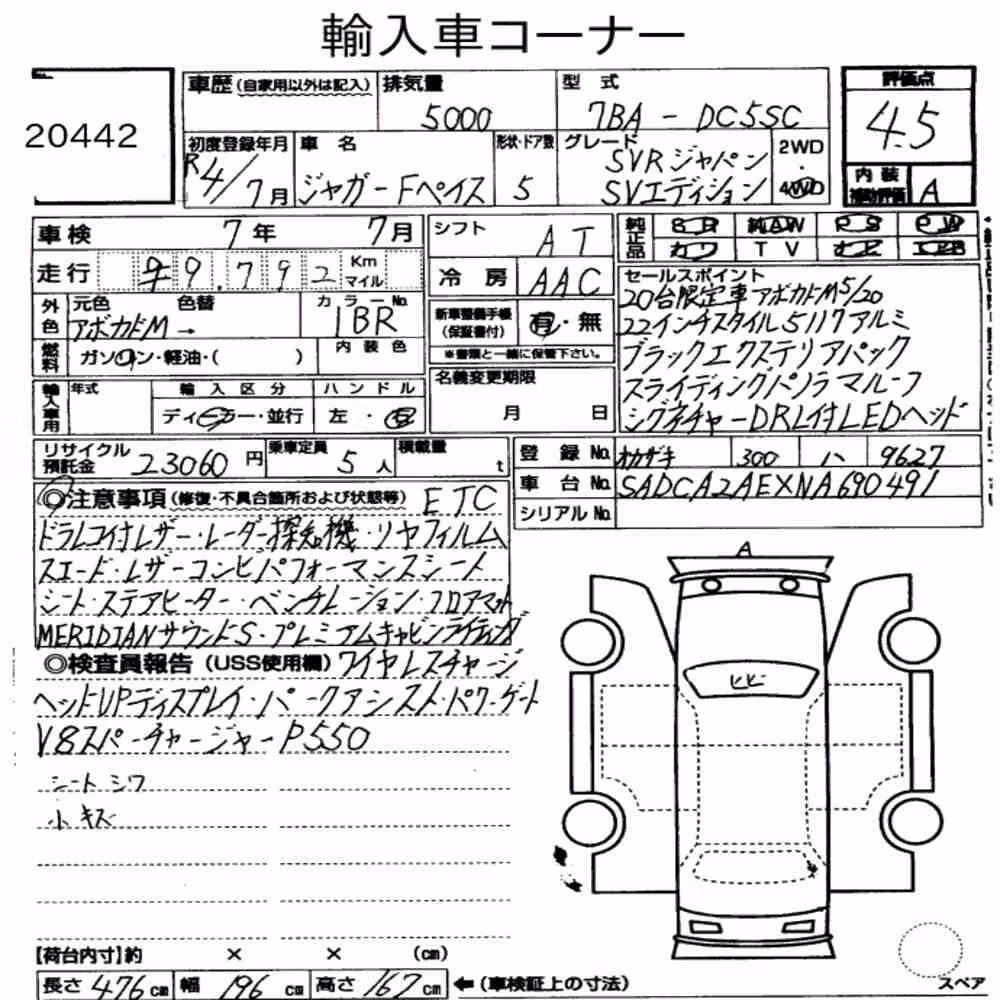 輸入車コーナー
20442
車歴 (自家用以外は記入) 排気量 5000 型式 7BA - DC5SC 評価点 4.5
初度登録年月 R4/7月 車名 ジャガー Fペイス 形状・ドア数 5 グレード SVRジャパン SVエディション 2WD・4WD 内装補助評価 A
車検 7年 7月 シフト AT 純正品 カワ TV
走行 9.792 Km マイル 冷房 AAC
外色 元色 アボカドM → 色替 カラーNo. 1BR 新車整備手帳 (保証書付) 有・無
※書類と一緒に保管下さい。
燃料 ガソリン・軽油・( ) 内装色
輸入車用 年式 輸入区分 ディーラー・並行 ハンドル 左・右 名義変更期限 月 日
セールスポイント
20台限定車 アボカドM 5/20
22インチスタイル5117アルミ
ブラックエクステリアパック
スライディングパノラマルーフ
シグネチャーDRL付LEDヘッド
リサイクル預託金 23060円 乗車定員 5人 積載量 t
登録No. オカザキ 300 ハ 9627
車台No. SADCA2AEXNA690491
シリアルNo.
◎注意事項 (修復・不具合箇所および状態等) ETC
ドラレコ付レザー・レーダー探知機・リヤフィルム
スエード・レザーコンビパフォーマンスシート
シート・ステアヒーター・ベンチレーション・フロアマット
MERIDIANサウンドS・プレミアムキャビンライティング
◎検査員報告 (USS使用欄) ワイヤレスチャージ
ヘッドUPディスプレイ・パークアシスト・パワーゲート
V8スーパーチャージャーP550
シートシワ
小キズ
A
ヒビ
【荷台内寸】約 × × (cm)
長さ 476cm 幅 196cm 高さ 167cm ←(車検証上の寸法)
スペア